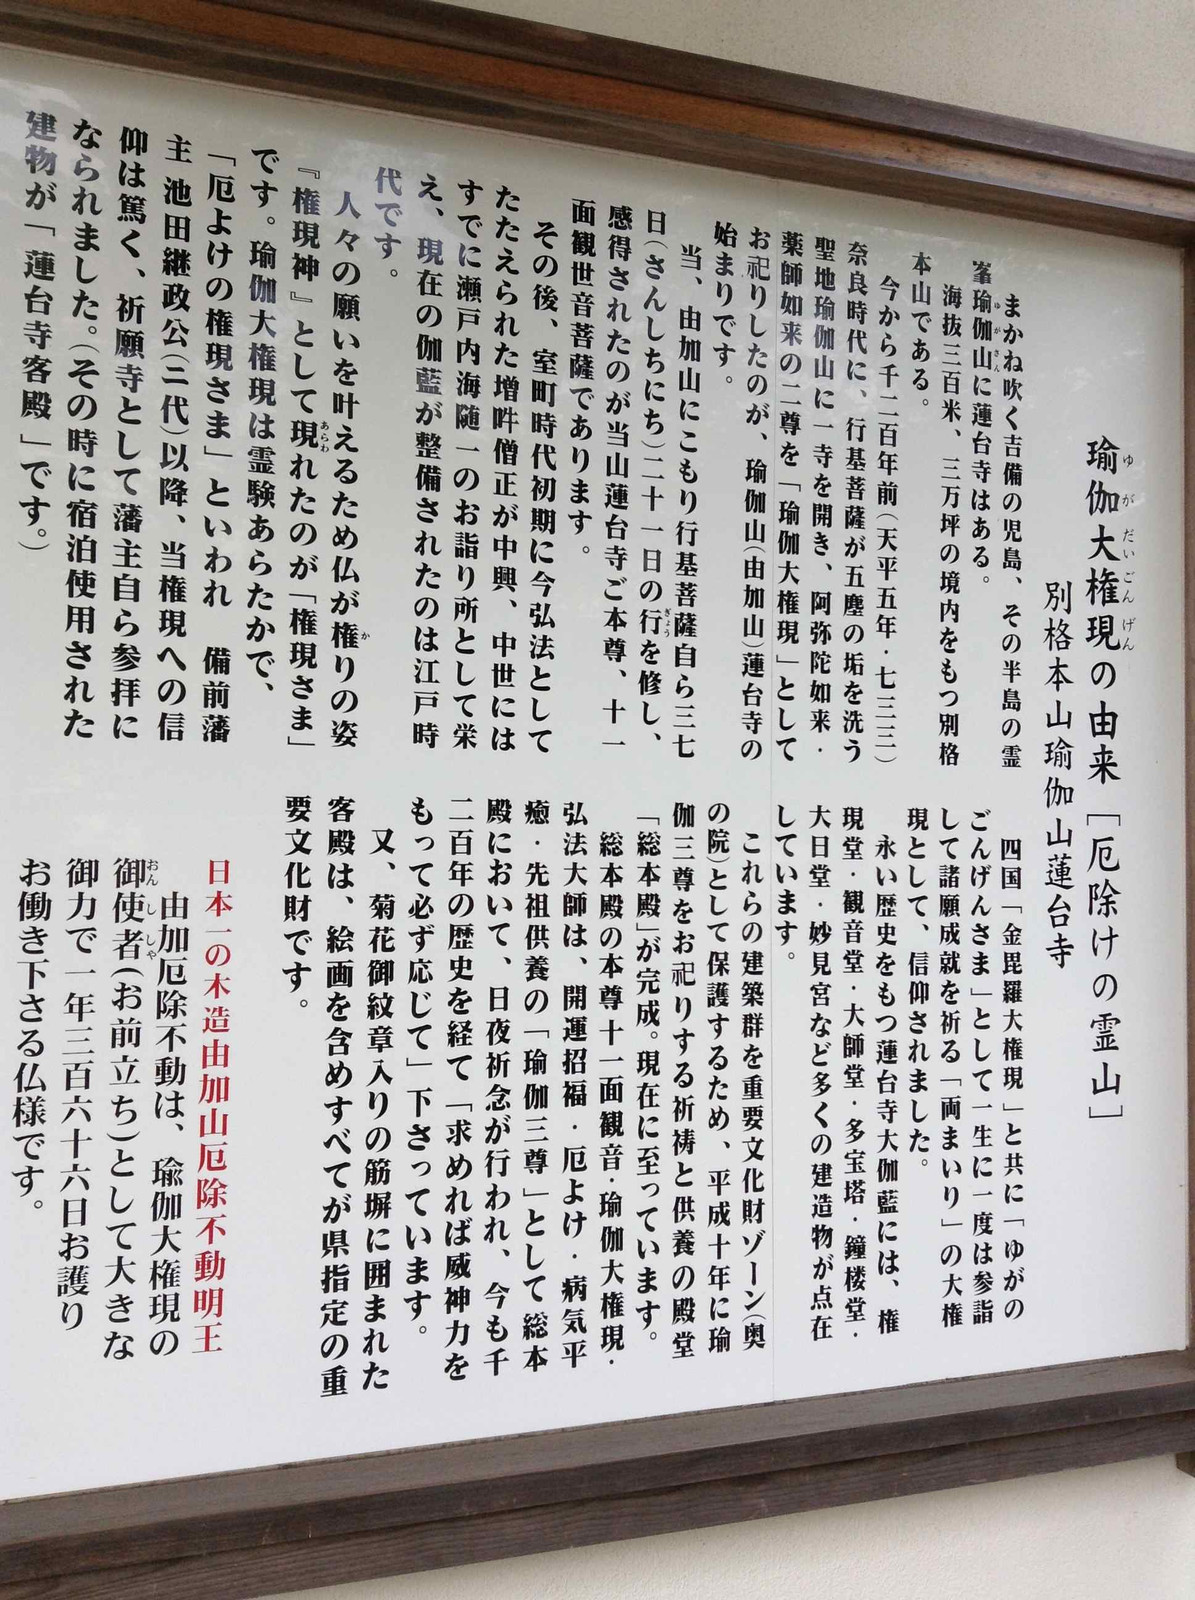 瑜伽大権現の由来［厄除けの霊山］
別格本山瑜伽山蓮台寺
まかね吹く吉備の児島、その半島の霊
峯瑜伽山に蓮台寺はある。
海抜三百米、三万坪の境内をもつ別格
本山である。
今から千二百年前（天平五年・七三三）
奈良時代に、行基菩薩が五塵の垢を洗う
聖地瑜伽山に一寺を開き、阿弥陀如来・
薬師如来の二尊を「瑜伽大権現」として
お祀りしたのが、瑜伽山（由加山）蓮台寺の
始まりです。
当、由加山にこもり行基菩薩自ら三七
日（さんしちにち）二十一日の行を修し、
感得されたのが当山蓮台寺ご本尊、十一
面観世音菩薩であります。
その後、室町時代初期に今弘法として
たたえられた増吽僧正が中興、中世には
すでに瀬戸内海随一のお詣り所として栄
え、現在の伽藍が整備されたのは江戸時
代です。
人々の願いを叶えるため仏が権りの姿
『権現神』として現れたのが「権現さま」
です。瑜伽大権現は霊験あらたかで、
「厄よけの権現さま」といわれ　備前藩
主 池田継政公（二代）以降、当権現への信
仰は篤く、祈願寺として藩主自ら参拝に
なられました。（その時に宿泊使用された
建物が「蓮台寺客殿」です。）
四国「金毘羅大権現」と共に「ゆがの
ごんげんさま」として一生に一度は参詣
して諸願成就を祈る「両まいり」の大権
現として、信仰されました。
永い歴史をもつ蓮台寺大伽藍には、権
現堂・観音堂・大師堂・多宝塔・鐘楼堂・
大日堂・妙見宮など多くの建造物が点在
しています。
これらの建築群を重要文化財ゾーン（奥
の院）として保護するため、平成十年に瑜
伽三尊をお祀りする祈祷と供養の殿堂
「総本殿」が完成。現在に至っています。
総本殿の本尊十一面観音・瑜伽大権現・
弘法大師は、開運招福・厄よけ・病気平
癒・先祖供養の「瑜伽三尊」として総本
殿において、日夜祈念が行われ、今も千
二百年の歴史を経て「求めれば威神力を
もって必ず応じて」下さっています。
又、菊花御紋章入りの筋塀に囲まれた
客殿は、絵画を含めすべてが県指定の重
要文化財です。
日本一の木造由加山厄除不動明王
由加厄除不動は、瑜伽大権現の
御使者（お前立ち）として大きな
御力で一年三百六十六日お護り
お働き下さる仏様です。